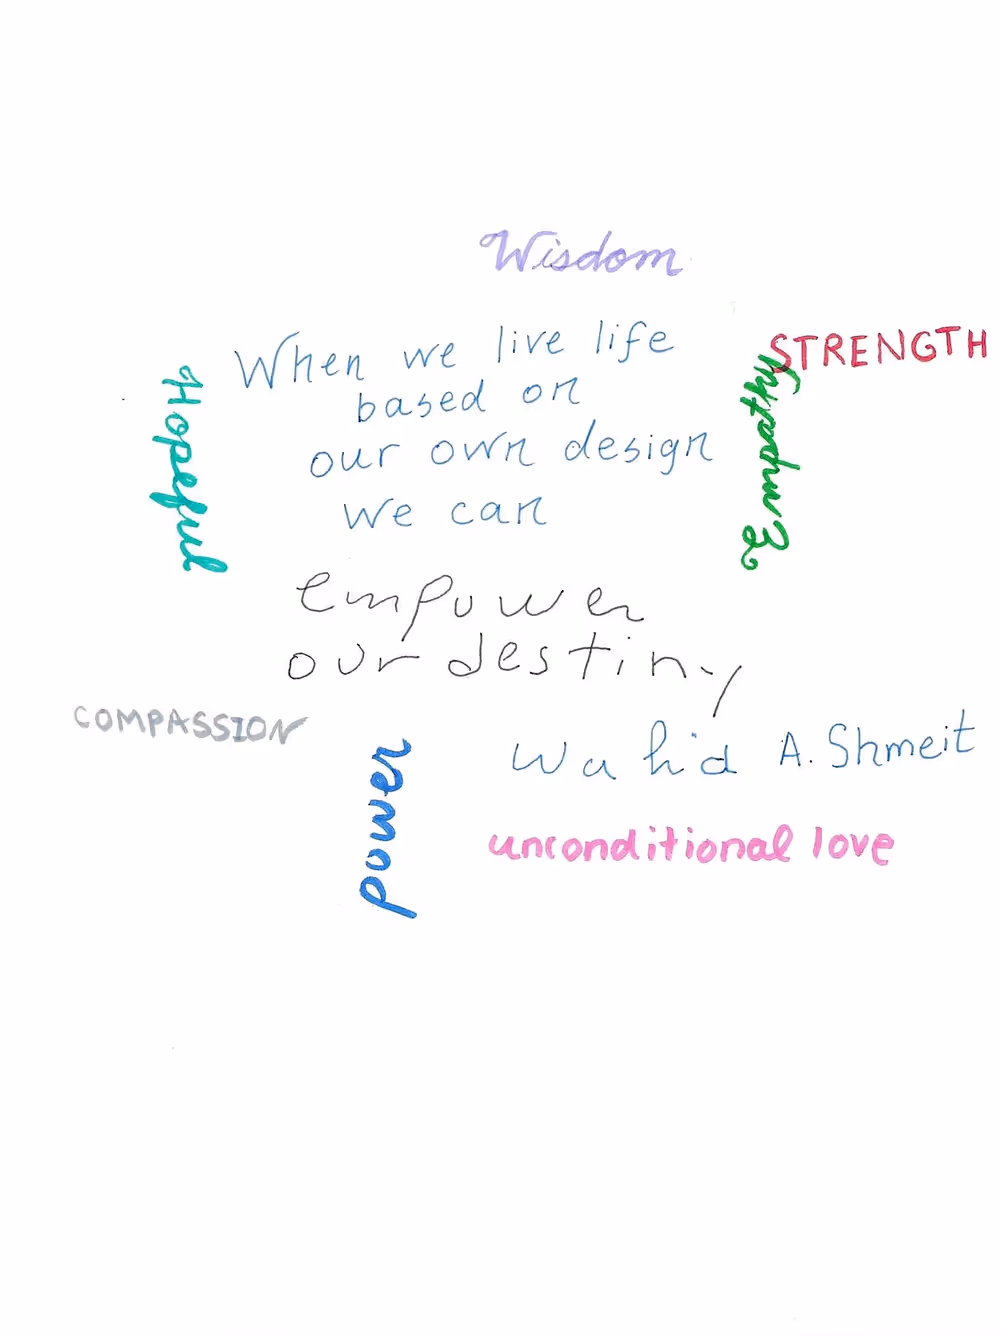 Wisdom
STRENGTH
When we live life
based on
our own design
we can
Hopeful
Empathy
empower
our destiny
COMPASSION
Wahid A. Shmeit
power
unconditional love